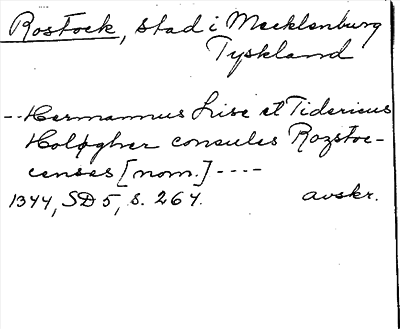 Rostock, stad i Mecklenburg
Tyskland
-- Hermannus Lise et Tidericus
Holøgher consules Rozstoc-
censes [nom.] ----
1344, SD 5, s. 264. avskr.